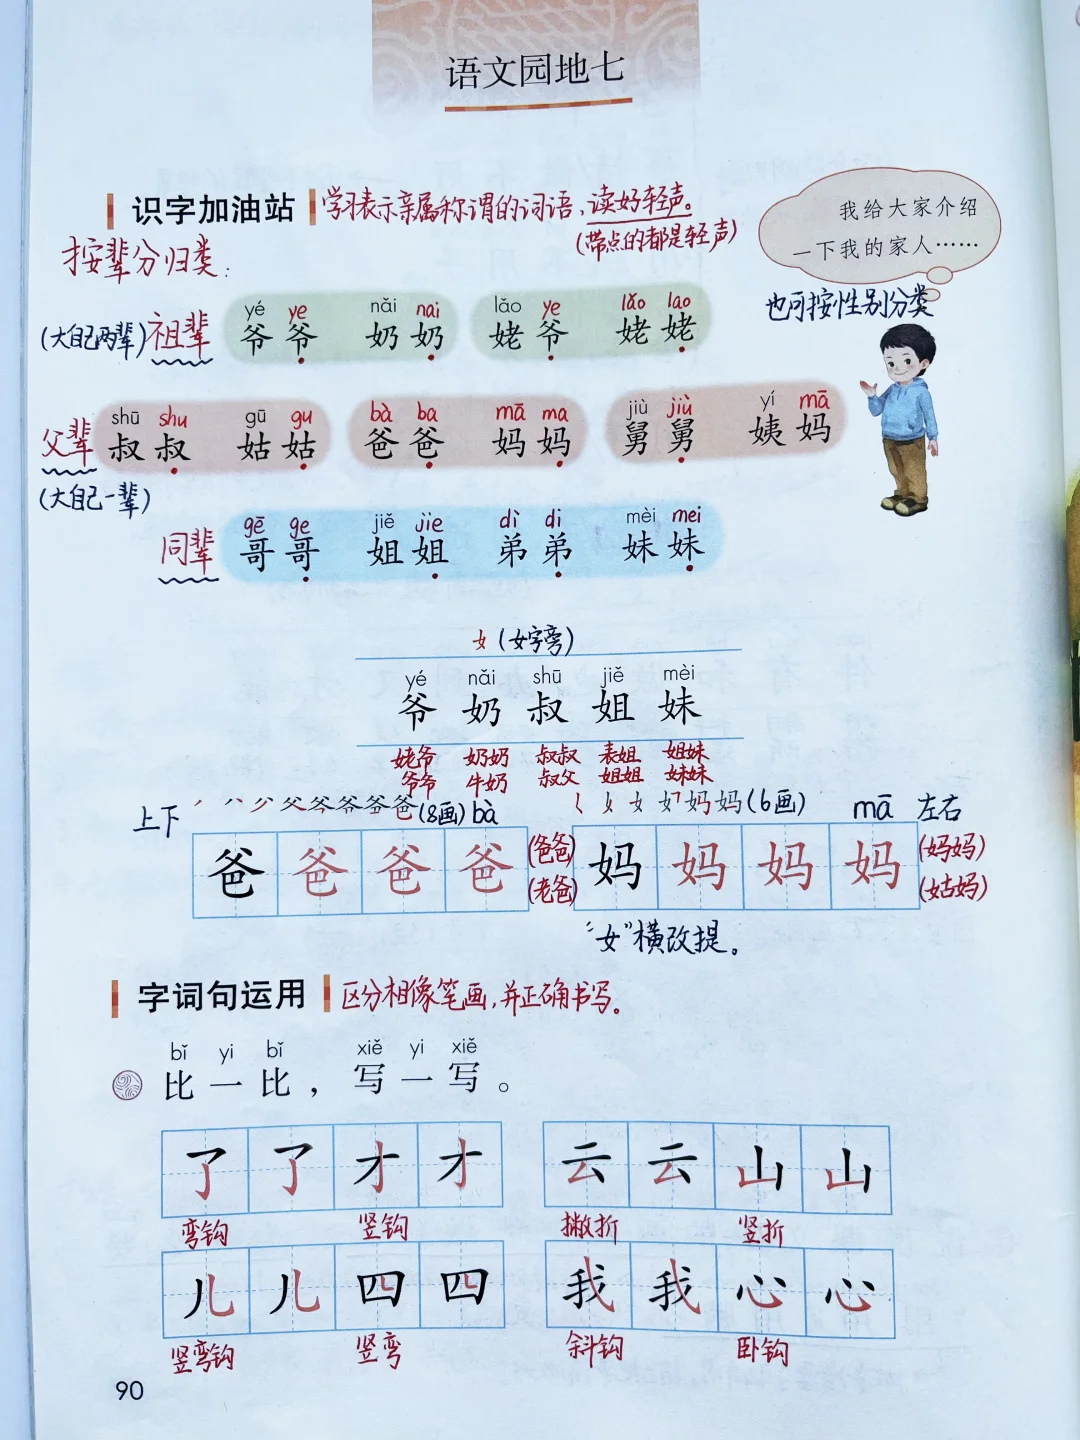 语文园地七
识字加油站 学习表示亲属称谓的词语，读好轻声。
(带点的都是轻声)
我给大家介绍
一下我的家人……
按辈分归类：
也可按性别分类
yé ye nǎi nai lǎo ye lǎo lao
(大自己两辈) 祖辈 爷爷 奶奶 姥爷 姥姥
shū shu gū gu bà ba mā ma jiù jiù yí mā
父辈 叔叔 姑姑 爸爸 妈妈 舅舅 姨妈
(大自己一辈)
gē ge jiě jie dì di mèi mei
同辈 哥哥 姐姐 弟弟 妹妹
女(女字旁)
yé nǎi shū jiě mèi
爷 奶 叔 姐 妹
姥爷 奶奶 叔叔 表姐 姐妹
爷爷 牛奶 叔父 姐姐 妹妹
上下 (8画) bà (6画) mā 左右
爸 爸 爸 爸 (爸爸) 妈 妈 妈 妈 (妈妈)
(老爸) (姑妈)
“女”横改提。
字词句运用 区分相像笔画，并正确书写。
bǐ yi bǐ xiě yi xiě
比一比，写一写。
了 了 才 才 云 云 山 山
弯钩 竖钩 撇折 竖折
儿 儿 四 四 我 我 心 心
竖弯钩 竖弯 斜钩 卧钩
90